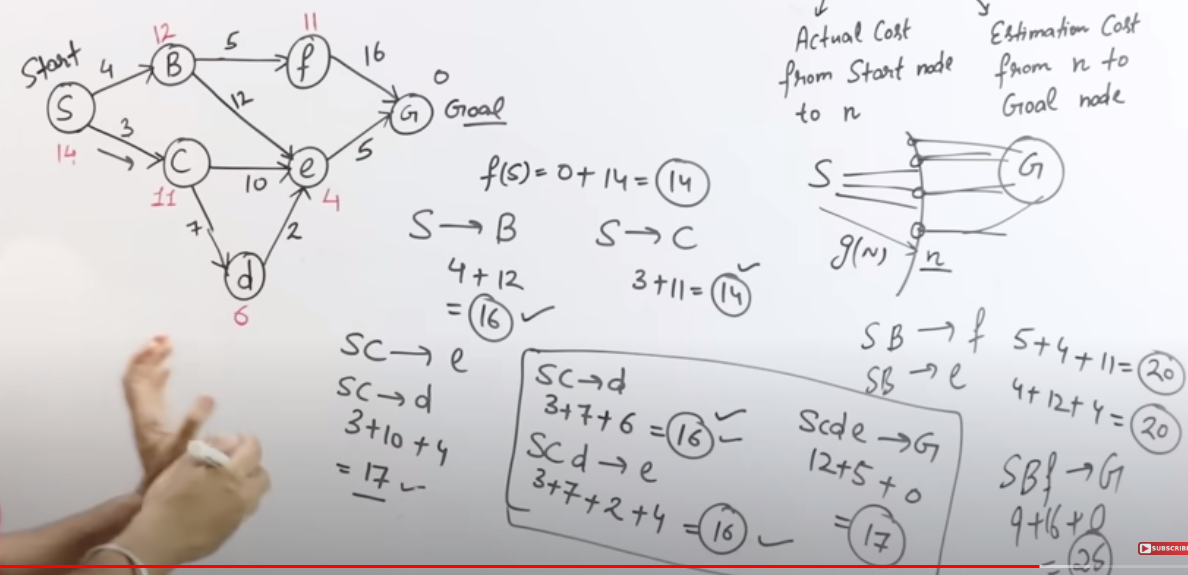 Start
S
14
4
12
B
5
11
f
16
0
G
Goal
3
12
C
11
10
e
4
5
7
2
d
6
Actual Cost
from Start node
to n
Estimation Cost
from n to
Goal node
S
G
g(N)
n
f(S) = 0 + 14 = 14
S → B
4 + 12
= 16 ✓
S → C
3 + 11 = 14 ✓
SC → e
SC → d
3 + 10 + 4
= 17 ✓
SC → d
3 + 7 + 6 = 16 ✓
SCd → e
3 + 7 + 2 + 4 = 16 ✓
Scde → G
12 + 5 + 0
= 17
SB → f 5 + 4 + 11 = 20
SB → e 4 + 12 + 4 = 20
SBf → G
9 + 16 + 0
= 25
SUBSCRIBE